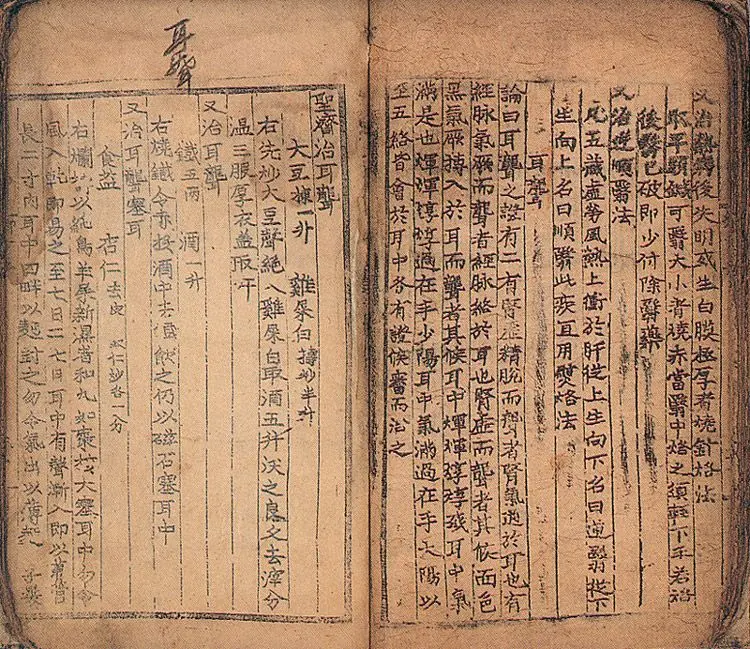 又治熱病後失明或生白膜極厚者燒針烙法
取平頭鍼可翳大小者燒赤當翳中烙之須輕下手若烙
後翳已破即少付除翳藥
又治逆順翳法
凡五藏虛勞風熱上衝於肝從上生向下名曰逆翳從下
生向上名曰順翳此疾宜用熨烙法
耳聾
論曰耳聾之證有二有腎虛精脫而聾者腎氣通於耳也有
經脉氣厥而聾者經脉絡於耳也腎虛而聾者其候面色
黑氣厥搏入於耳而聾者其候耳中煇煇焞焞或耳中氣
滿是也煇煇焞焞過在手少陽耳中氣滿過在手太陽以
至五絡皆會於耳中各有證候審而治之
耳聾
聖濟治耳聾
大豆揀一升 雞屎白擣炒半升
右先炒大豆聲絕入雞屎白取酒五升沃之良久去滓分
溫三服厚衣蓋取汗
又治耳聾
鐵五兩 酒一升
右燒鐵令赤投酒中去鐵飲之仍以磁石塞耳中
又治耳聾塞耳
食益 杏仁去皮 仁炒各一分
右爛以紙烏羊新濕者和丸如棗核大塞耳中勿令
風入乾即易之至七日二七日耳中有聲漸入即以管
長二寸內耳中四畔以麵封之勿令氣出以薄